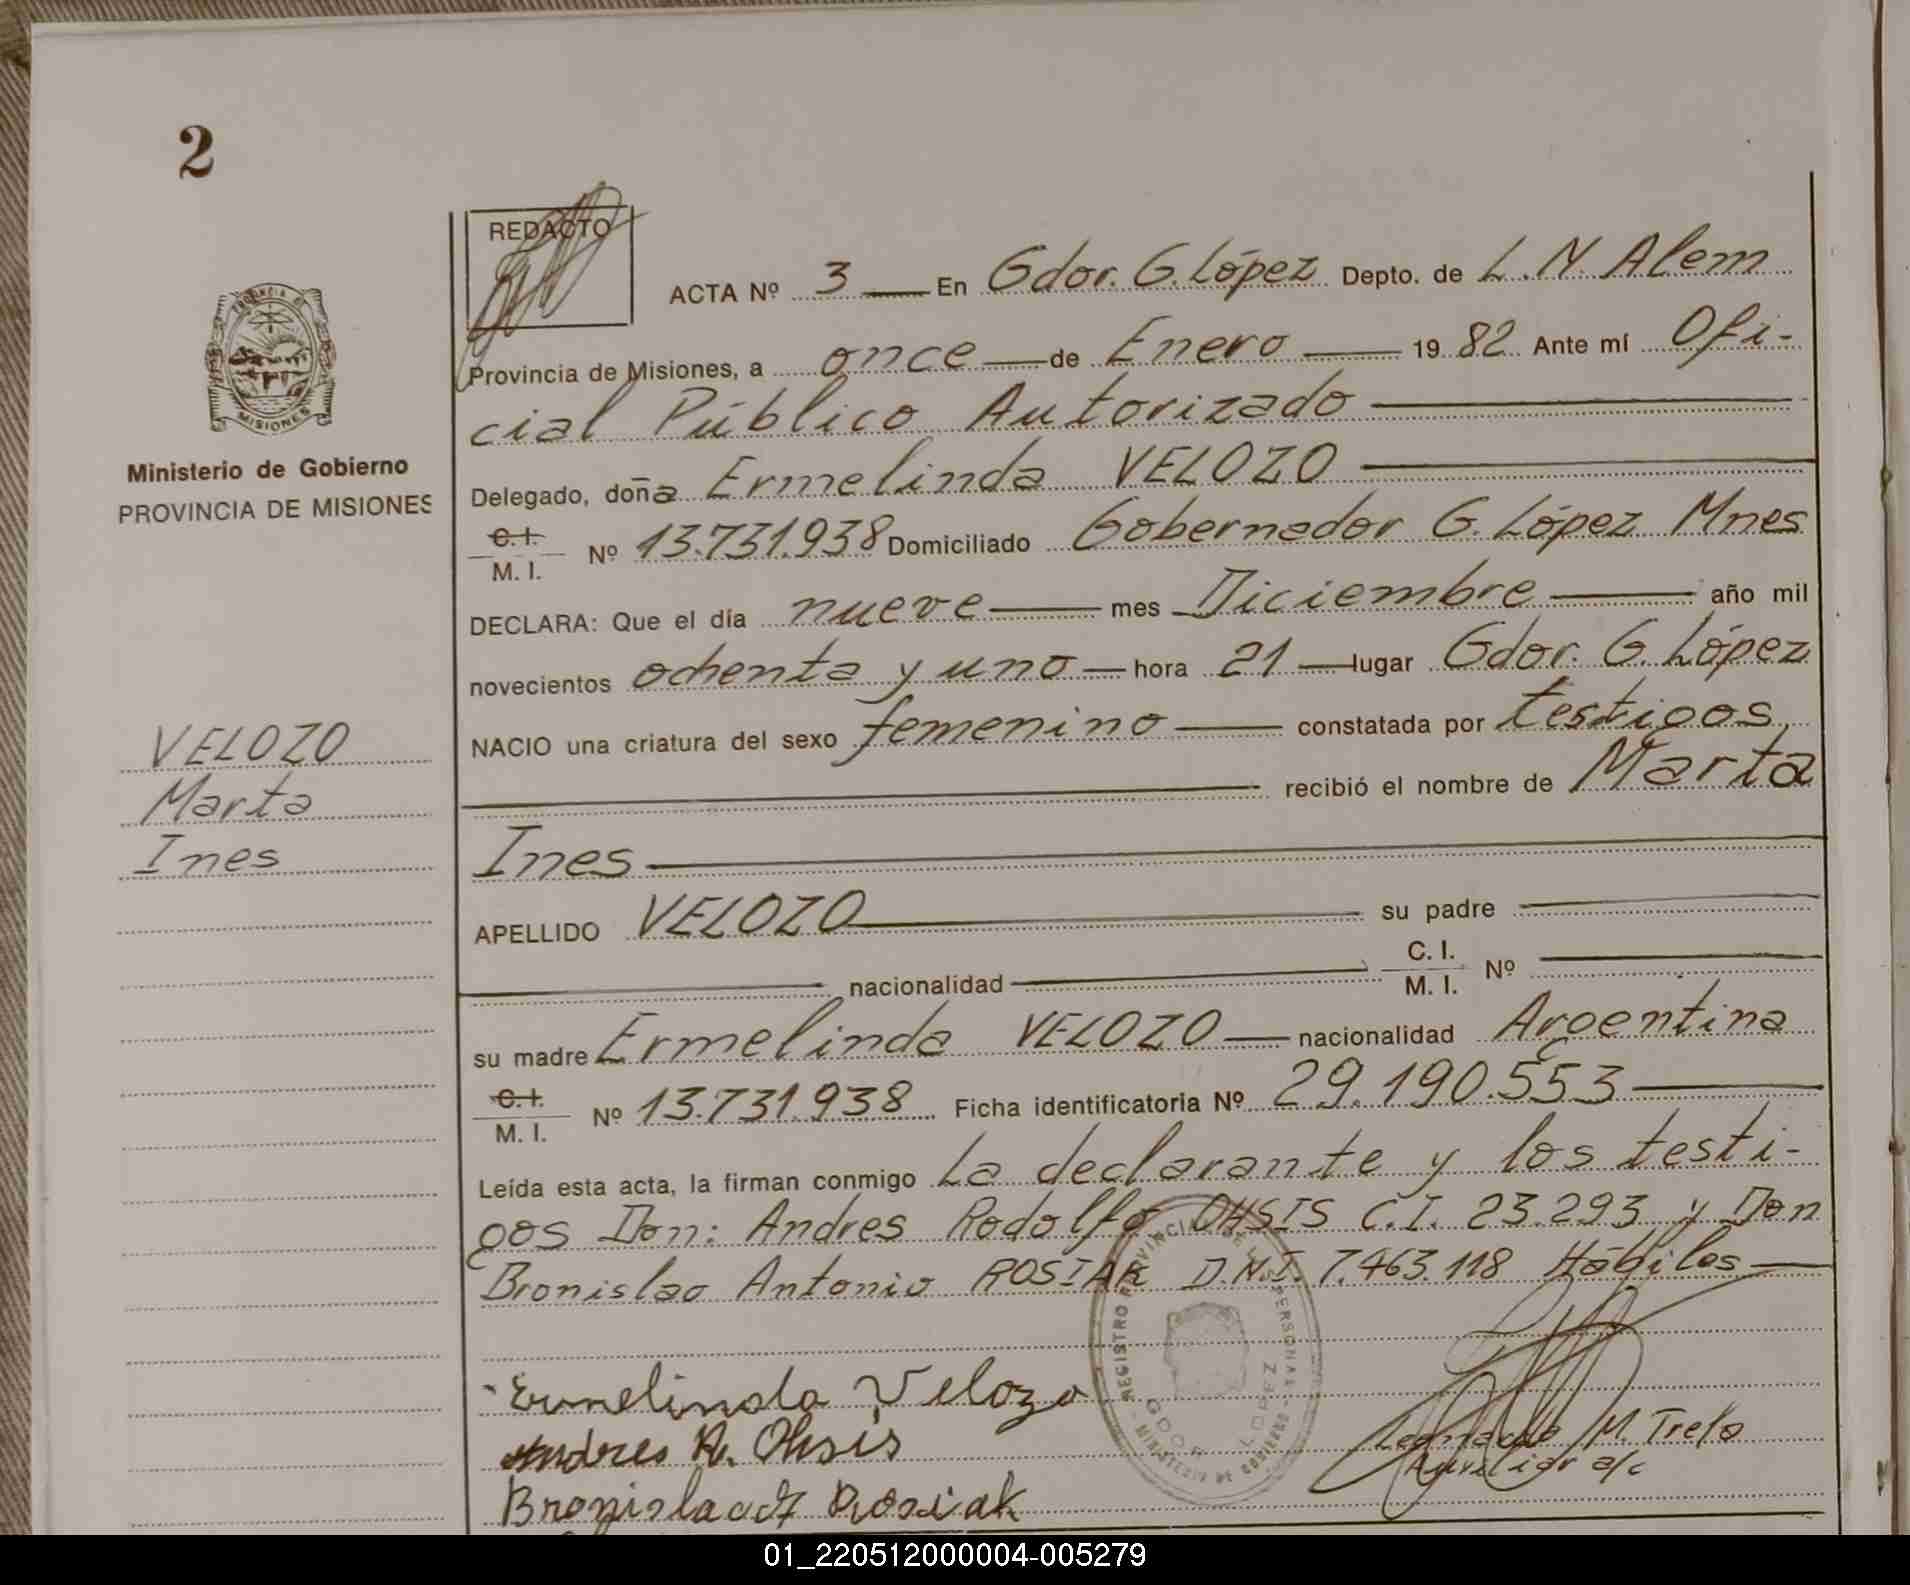 2
REDACTO
ACTA Nº 3 En Gdor. G. López Depto. de L. N. Alem
Provincia de Misiones, a once de Enero 1982 Ante mí Ofi-
cial Público Autorizado
Delegado, doña Ermelinda VELOZO
C. I.
M. I. Nº 13.731.938 Domiciliado Gobernador G. López Mnes
DECLARA: Que el día nueve mes Diciembre año mil
novecientos ochenta y uno hora 21 lugar Gdor. G. López
NACIO una criatura del sexo femenino constatada por testigos
recibió el nombre de Marta
Ines
APELLIDO VELOZO su padre
nacionalidad C. I.
M. I. Nº
su madre Ermelinda VELOZO nacionalidad Argentina
C. I.
M. I. Nº 13.731.938 Ficha identificatoria Nº 29.190.553
Leída esta acta, la firman conmigo La declarante y los testi-
gos Don: Andres Rodolfo OHSIS C.I. 23.293 y Don
Bronislao Antonio ROSIAK D.N.I. 7.463.118 Hábiles
Ermelinda Velozo
Andres R. Ohsis
Rosiak
M. Trelo
Auxiliar a/c
PROVINCIA D
MISIONES
Ministerio de Gobierno
PROVINCIA DE MISIONES
VELOZO
Marta
Ines
REGISTRO PROVINCIAL DE L PERSONAS
MINISTERIO DE GOBIERNO
GDOR LOPEZ
01_220512000004-005279